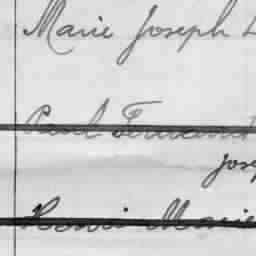 Marie Joseph
Paul Fernand
Jose
Henri Marie